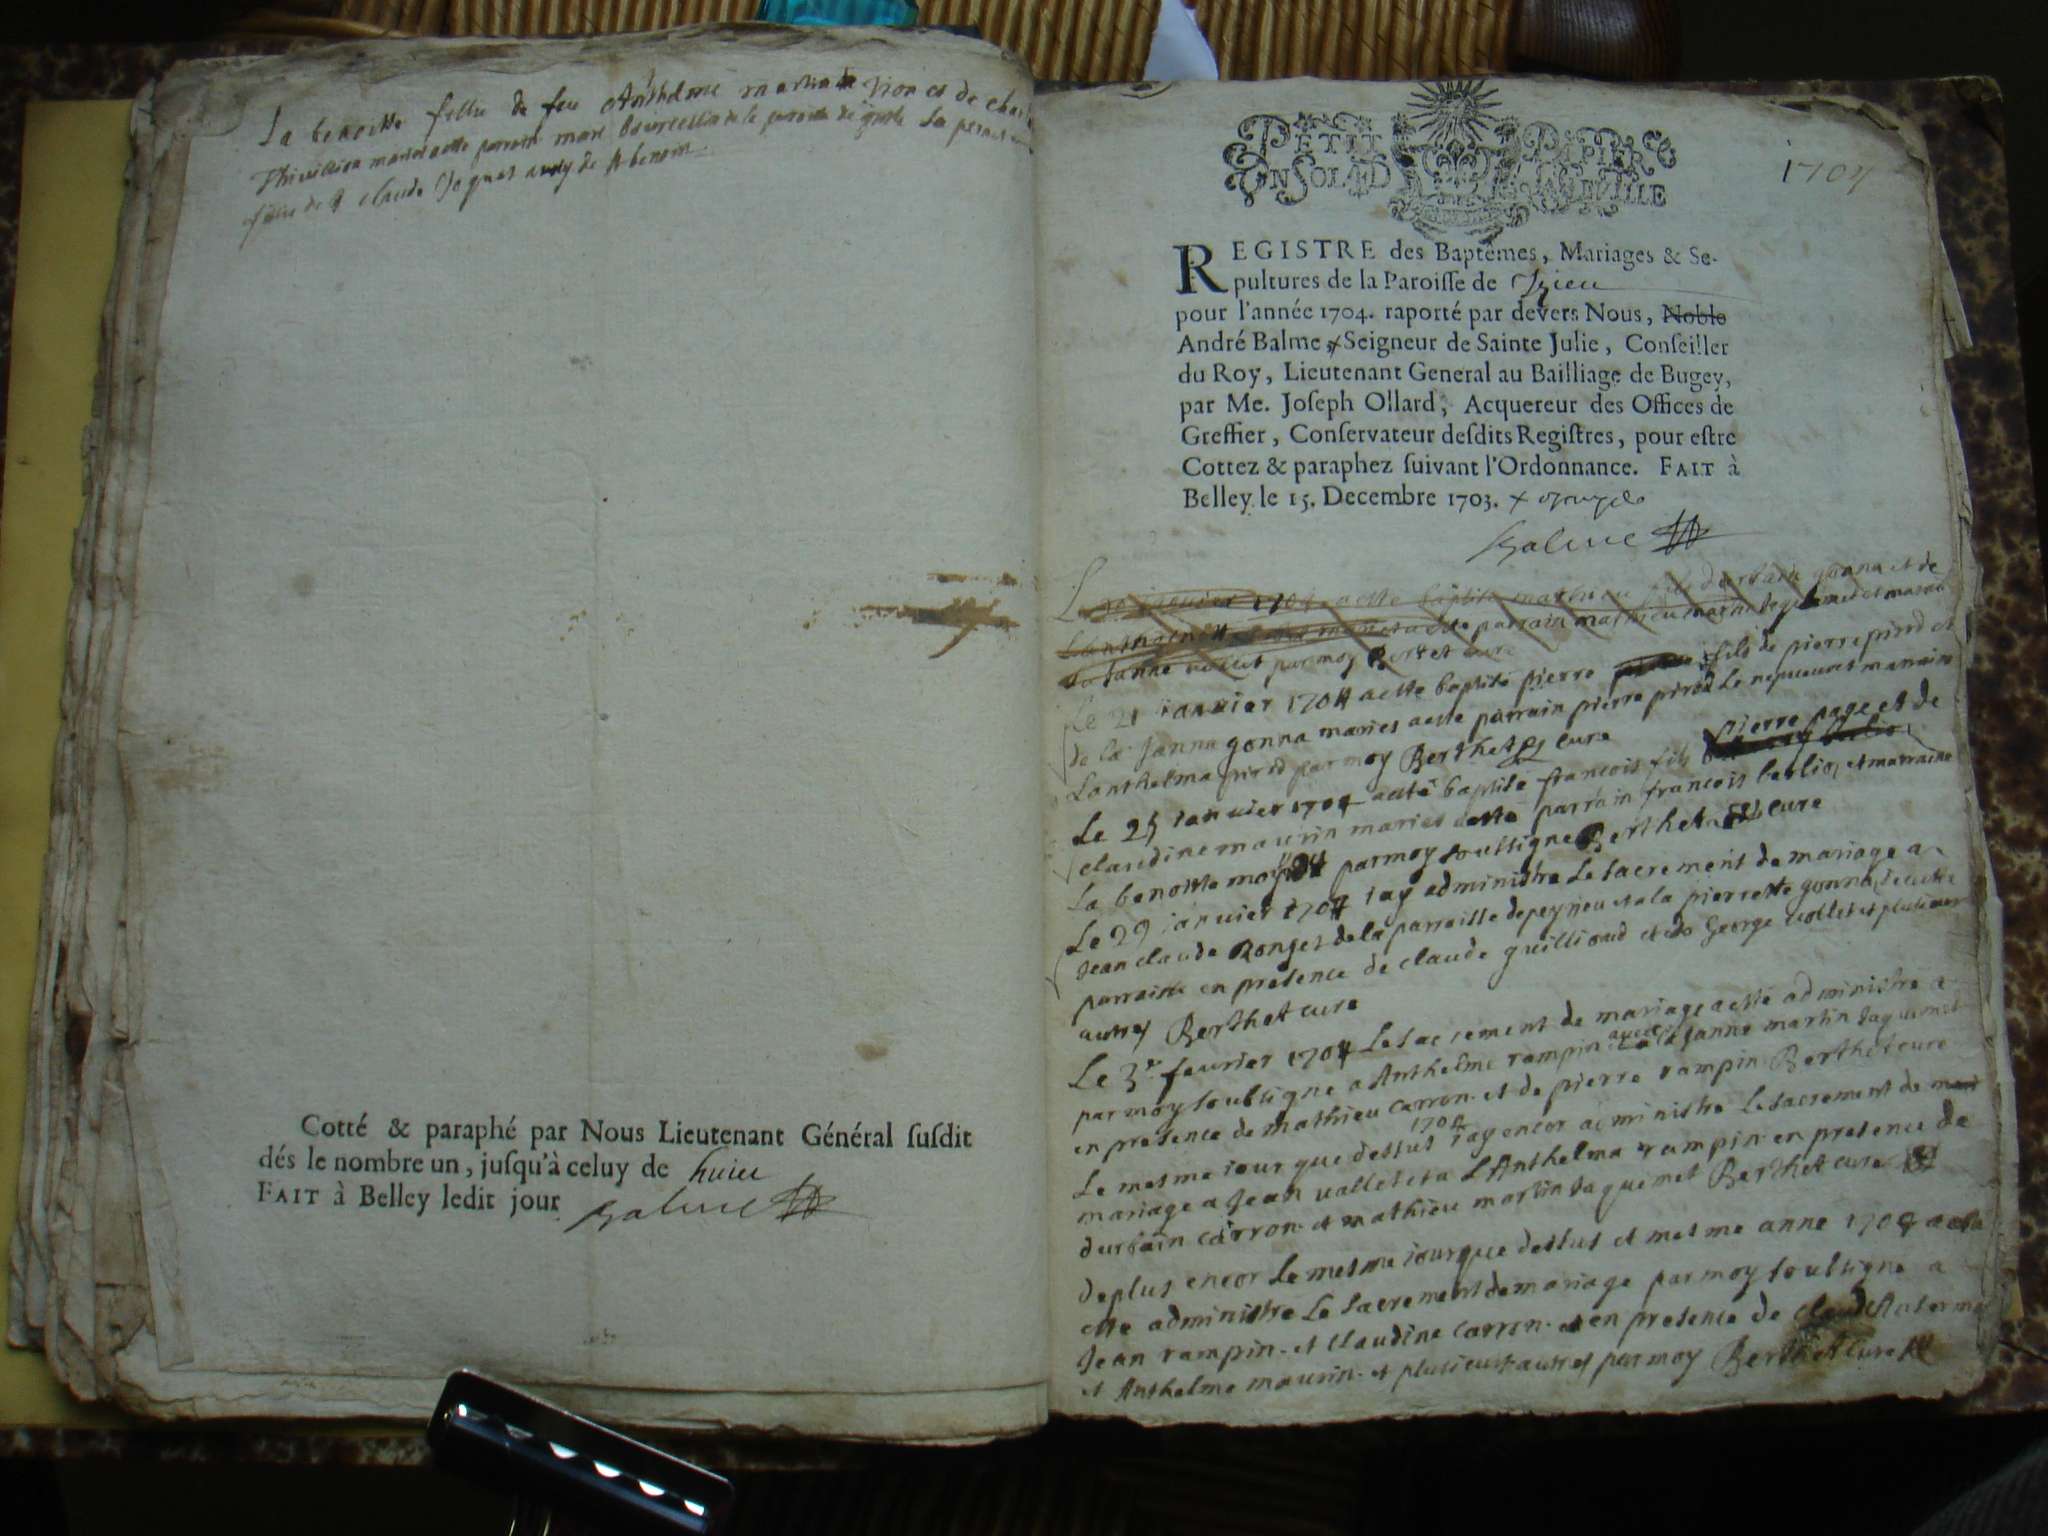 La benoitte fillie de feu Anthelme martin de Vion et de
mariés acte parrain marc de la paroisse de La
de claude Jaquet
Cotté & paraphé par Nous Lieutenant Général susdit
dés le nombre un, jusqu'à celuy de huict
FAIT à Belley ledit jour Balme
PETIT PAPIER
UN SOL LA FEUILLE
1704
REGISTRE des Baptêmes, Mariages & Se-
pultures de la Paroisse de Izieu
pour l'année 1704. raporté par devers Nous, Noble
André Balme Seigneur de Sainte Julie, Conseiller
du Roy, Lieutenant General au Bailliage de Bugey,
par Me. Joseph Ollard, Acquereur des Offices de
Greffier, Conservateur desdits Registres, pour estre
Cottez & paraphez suivant l'Ordonnance. FAIT à
Belley le 15. Decembre 1703.
Balme
Le janvier 1704 a esté baptisé mathieu fils durbain gonna et de
parrain mathieu martin Jaquemet et
La Janne vallet par moy Berthet curé
Le 21 januier 1704 a esté baptisé pierre fils de pierre pirod et
de la Janna gonna mariés a esté parrain pierre pirod Le nepueu et marraine
Lanthelma pirod par moy Berthet curé
Le 25 ianuier 1704 a esté baptisé francois fils pierre page et de
claudine maurin mariés a esté parrain francois berlioz et marraine
La benoitte par moy soussigné Berthet curé
Le 29 januier 1704 iay administré Le sacrement de mariage a
Jean claude Ronget de la parroisse de peyrieu et a la pierrette gonna de cette
parroisse en presence de claude guillioud et de George vollet et plusieurs
autres Berthet curé
Le 3e feurier 1704 Le sacrement de mariage a esté administré
par moy soussigné a Anthelme rampin auec La Janne martin Jaquemet
en presence de mathieu carron et de pierre rampin Berthet curé
Le mesme iour que dessus 1704 iay encor administré Le sacrement de
mariage a Jean vallet et a LAnthelma rampin en presence de
durbain carron et mathieu martin Jaquemet Berthet curé
de plus encor Le mesme iour que dessus et mesme anne 1704 a
esté administré Le sacrement de mariage par moy soussigné a
Jean rampin et claudine carron et en presence de claude
et Anthelme maurin et plusieurs autres par moy Berthet curé